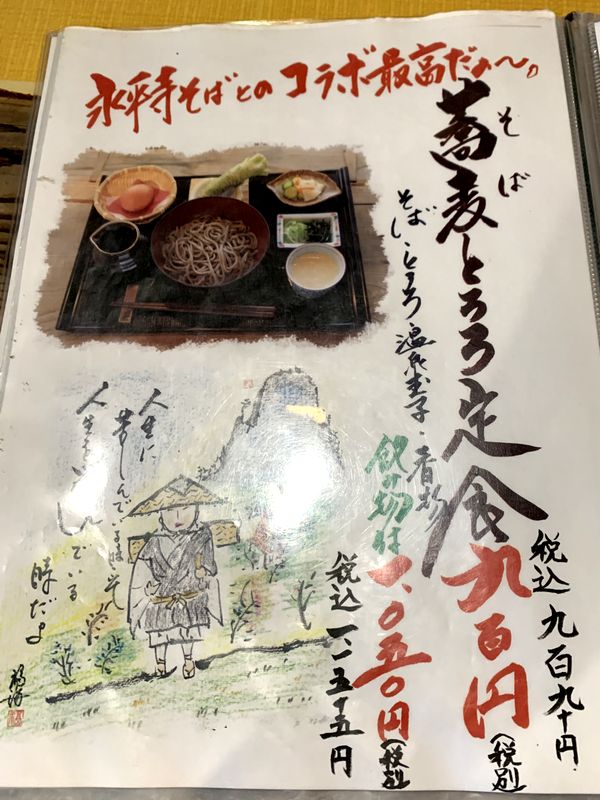 永平寺そばとのコラボ最高だぁ〜。
蕎麦とろろ定食
そば
九百円
(税別)
税込 九百九十円
そば・とろろ・温泉玉子・香物
飲み物付
一、〇五〇円
(税別)
税込 一一五五円
人生に
苦しんでいる時は
人生を
でいる
時だよ